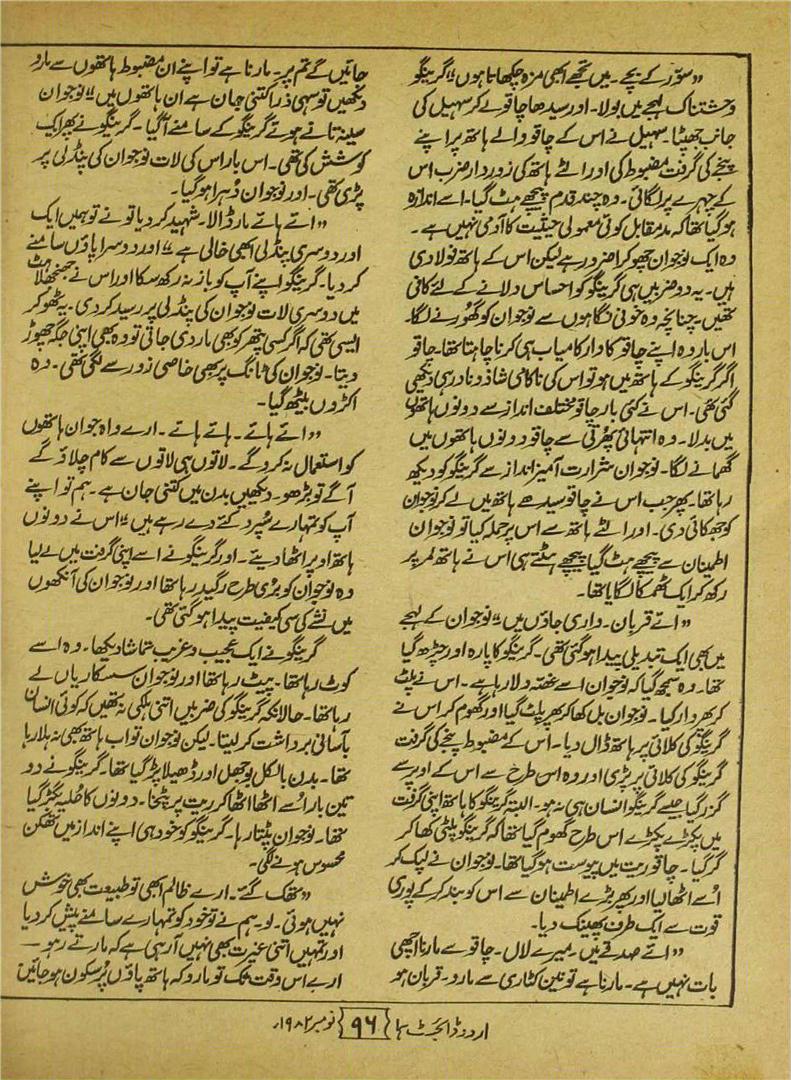 ”سوّر کے بچے۔ میں تجھے ابھی مزہ چکھاتا ہوں“ گرینگو
وحشتناک لہجے میں بولا۔ اور سیدھا چاقو لے کر سہیل کی
جانب جھپٹا۔ سہیل نے اس کے چاقو والے ہاتھ پر اپنے
پنجے کی گرفت مضبوط کی اور الٹے ہاتھ کی زور دار ضرب اس
کے چہرے پر لگائی۔ وہ چند قدم پیچھے ہٹ گیا۔ اسے اندازہ
ہو گیا تھا کہ مدمقابل کوئی معمولی حیثیت کا آدمی نہیں ہے۔
وہ ایک نوجوان چھوکرا ضرور ہے لیکن اس کے ہاتھ فولادی
ہیں۔ یہ دو ضربیں ہی گرینگو کو احساس دلانے کے لئے کافی
تھیں۔ چنانچہ وہ خونی نگاہوں سے نوجوان کو گھورنے لگا۔
اس بار وہ اپنے چاقو کا وار کامیاب ہی کرنا چاہتا تھا۔ چاقو
اگر گرینگو کے ہاتھ میں ہو تو اس کی ناکامی شاذ و نادر ہی دیکھی
گئی تھی۔ اس نے کئی بار چاقو مختلف انداز سے دونوں ہاتھوں
میں بدلا۔ وہ انتہائی پھرتی سے چاقو دونوں ہاتھوں میں
گھمانے لگا۔ نوجوان شرارت آمیز انداز سے گرینگو کو دیکھ
رہا تھا۔ پھر جب اس نے چاقو سیدھے ہاتھ میں لے کر نوجوان
کو جھکائی دی۔ اور الٹے ہاتھ سے اس پر حملہ کیا تو نوجوان
اطمینان سے پیچھے ہٹ گیا پیچھے ہٹتے ہی اس نے ہاتھ کمر پر
رکھ کر ایک ٹھمکا لگایا تھا۔
”اتے قربان۔ واری جاؤں میں“ نوجوان کے لہجے
میں بھی ایک تبدیلی پیدا ہو گئی تھی۔ گرینگو کا پارہ اور چڑھ گیا
تھا۔ وہ سمجھ گیا کہ نوجوان اسے غصّہ دلا رہا ہے۔ اس نے پلٹ
کر پھر وار کیا۔ نوجوان بل کھا کر پھر پلٹ گیا اور گھوم کر اس نے
گرینگو کی کلائی پر ہاتھ ڈال دیا۔ اس کے مضبوط پنجے کی گرفت
گرینگو کی کلائی پر پڑی اور وہ اس طرح سے اس کے اوپر سے
گزر گیا جیسے گرینگو انسان ہی نہ ہو۔ البتہ گرینگو کا ہاتھ اپنی گرفت
میں پکڑے پکڑے اس طرح گھوم گیا تھا کہ گرینگو پلٹی کھا کر
گر گیا۔ چاقو ریت میں پیوست ہو گیا تھا۔ نوجوان نے لپک کر
اُسے اٹھا لیا اور پھر بڑے اطمینان سے اس کو بند کر کے پوری
قوت سے ایک طرف پھینک دیا۔
”اتے صدقے میں۔ میرے لال۔ چاقو سے مارنا اچھی
بات نہیں ہے۔ مارنا ہے تو نین کٹاری سے مارو۔ قربان ہو
جائیں گے تم پر۔ مارنا ہے تو اپنے ان مضبوط ہاتھوں سے مارو
دیکھیں تو سہی ذرا کتنی جان ہے ان ہاتھوں میں“ نوجوان
سینہ تانے ہوئے گرینگو کے سامنے آ گیا۔ گرینگو نے پھر ایک
کوشش کی تھی۔ اس بار اس کی لات نوجوان کی پنڈلی پر
پڑی تھی۔ اور نوجوان دُہرا ہو گیا۔
”اتے ہاتے مار ڈالا۔ شہید کر دیا تو نے تو ہمیں ایک
اور دوسری پنڈلی ابھی خالی ہے“ اور دوسرا پاؤں سامنے
کر دیا۔ گرینگو اپنے آپ کو باز نہ رکھ سکا اور اس نے جھنجھلاہٹ
میں دوسری لات نوجوان کی پنڈلی پر رسید کر دی۔ یہ ٹھوکر
ایسی تھی کہ اگر کسی پتھر کو بھی مار دی جاتی تو وہ بھی اپنی جگہ چھوڑ
دیتا۔ نوجوان کی ٹانگ پر بھی خاصی زور سے لگی تھی۔ وہ
اکڑوں بیٹھ گیا۔
”اتے ہاتے۔ ہاتے ہاتے۔ ارے واہ جوان ہاتھوں
کو استعمال نہ کرو گے۔ لاتوں ہی لاتوں سے کام چلاؤ گے
آگے تو بڑھو۔ دیکھیں بدن میں کتنی جان ہے۔ ہم تو اپنے
آپ کو تمہارے سُپرد کئے دے رہے ہیں“ اس نے دونوں
ہاتھ اوپر اٹھا دیئے۔ اور گرینگو نے اسے اپنی گرفت میں لے لیا
وہ نوجوان کو بُری طرح رگید رہا تھا اور نوجوان کی آنکھوں
میں نشے کی سی کیفیت پیدا ہو گئی تھی۔
گرینگو نے ایک عجیب و غریب تماشا دیکھا۔ وہ اسے
کوٹ رہا تھا۔ پیٹ رہا تھا اور نوجوان سسکاریاں لے
رہا تھا۔ حالانکہ گرینگو کی ضربیں اتنی ہلکی نہ تھیں کہ کوئی انسان
بآسانی برداشت کر لیتا۔ لیکن نوجوان تو اب ہاتھ بھی نہ ہلا رہا
تھا۔ بدن بالکل بوجھل اور ڈھیلا پڑ گیا تھا۔ گرینگو نے دو
تین بار اُسے اٹھا اٹھا کر ریت پر پٹخا۔ دونوں کا حُلیہ بگڑ گیا
تھا۔ نوجوان پٹتا رہا۔ گرینگو کو خود ہی اپنے انداز میں تھکن
محسوس ہونے لگی۔
”تھک گئے۔ ارے ظالم ابھی تو طبیعت بھی خوش
نہیں ہوئی۔ لو۔ ہم نے تو خود کو تمہارے سامنے پیش کر دیا
اور تمہیں اتنی غیرت بھی نہیں آ رہی ہے کہ مارتے رہو —
ارے اس وقت تک تو مارو کہ ہاتھ پاؤں پُرسکون ہو جائیں
اردو ڈائجسٹ ہما {۹۶} نومبر ۱۹۸۲ء